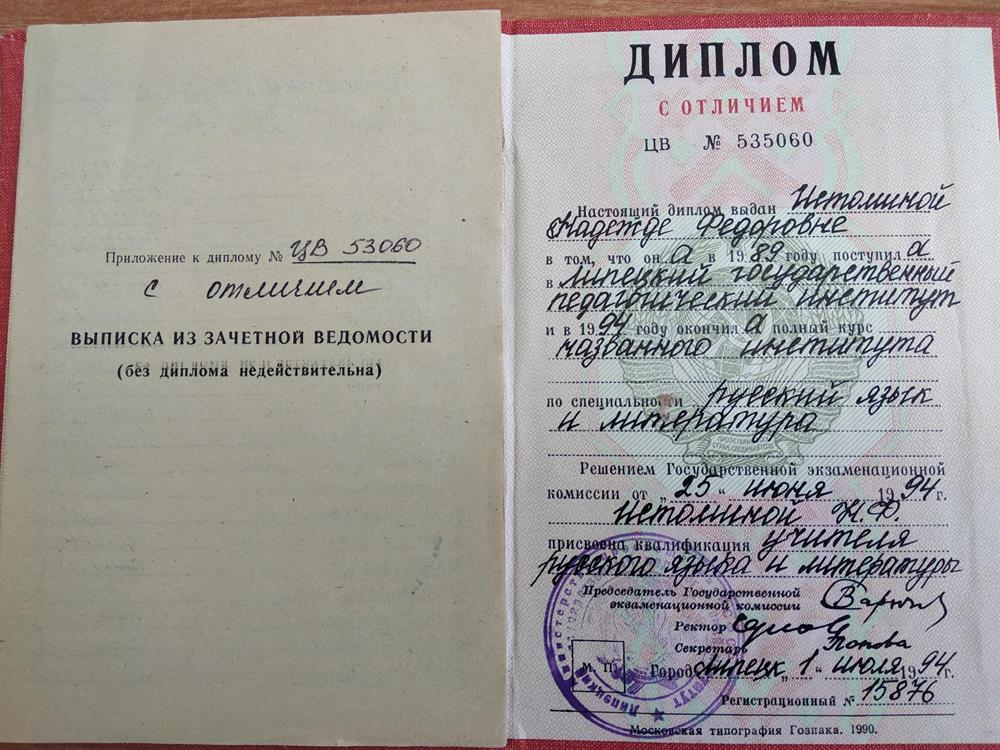 Приложение к диплому № ЦВ 53060
с отличием
ВЫПИСКА ИЗ ЗАЧЕТНОЙ ВЕДОМОСТИ
(без диплома недействительна)
ДИПЛОМ
С ОТЛИЧИЕМ
ЦВ № 535060
Настоящий диплом выдан Истоминой
Надежде Федоровне
в том, что он а в 1989 году поступил а
в Липецкий государственный
педагогический институт
и в 1994 году окончил а полный курс
названного института
по специальности русский язык
и литература
Решением Государственной экзаменационной
комиссии от „25“ июня 1994г.
Истоминой Н.Ф.
присвоена квалификация учителя
русского языка и литературы
Председатель Государственной
экзаменационной комиссии
Ректор
Секретарь Попова
М. П. Город Липецк „1“ июля 1994г.
Регистрационный № 15876
Московская типография Гознака. 1990.